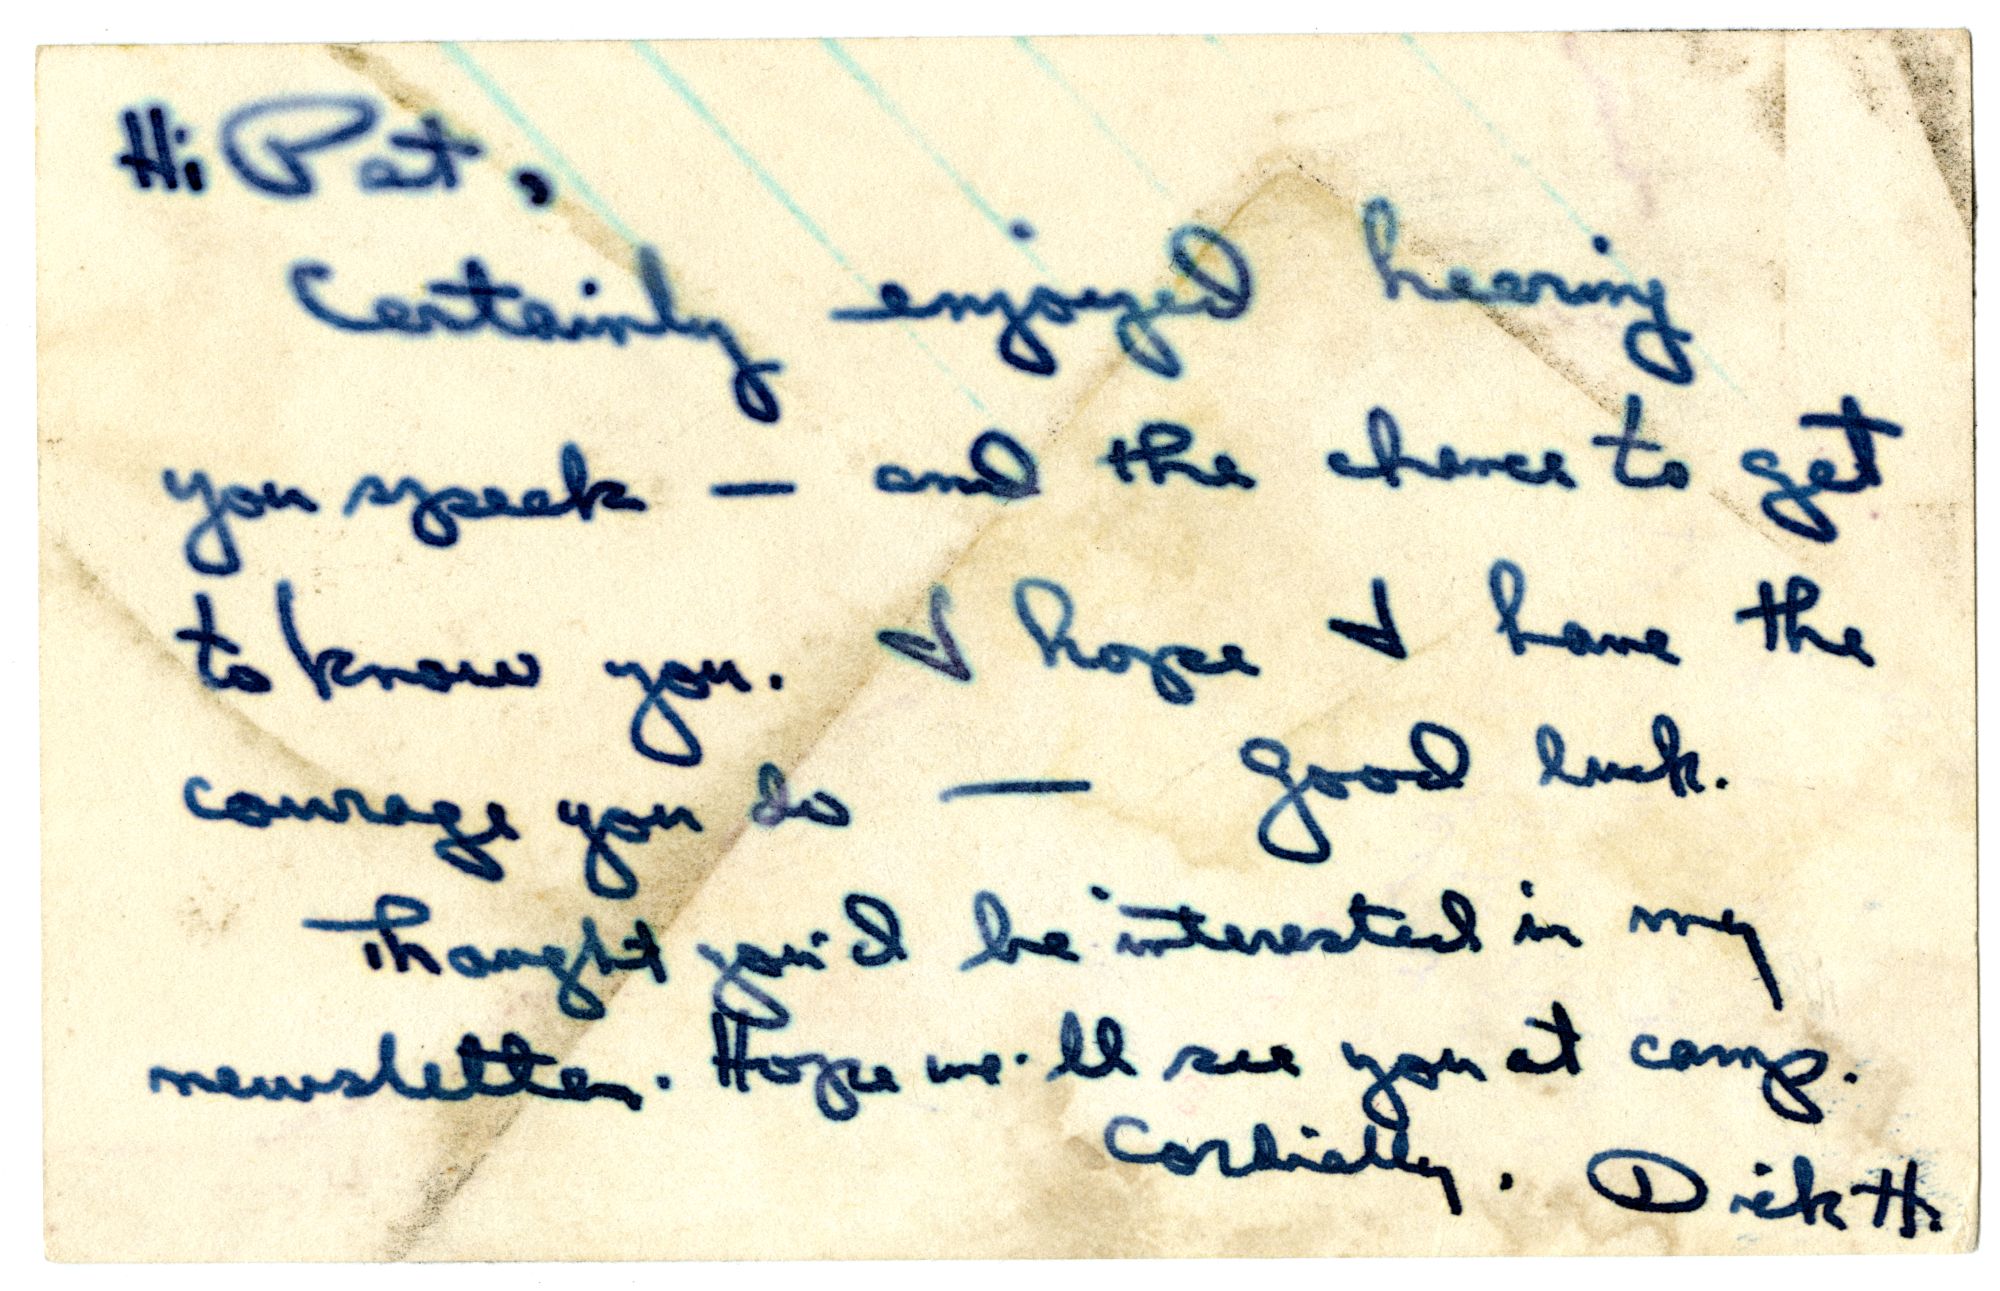 Hi Pat,
Certainly enjoyed hearing
you speak — and the chance to get
to know you. I hope I have the
courage you do — good luck.
Thought you'd be interested in my
newsletter. Hope we'll see you at camp.
Cordially, Dick H.